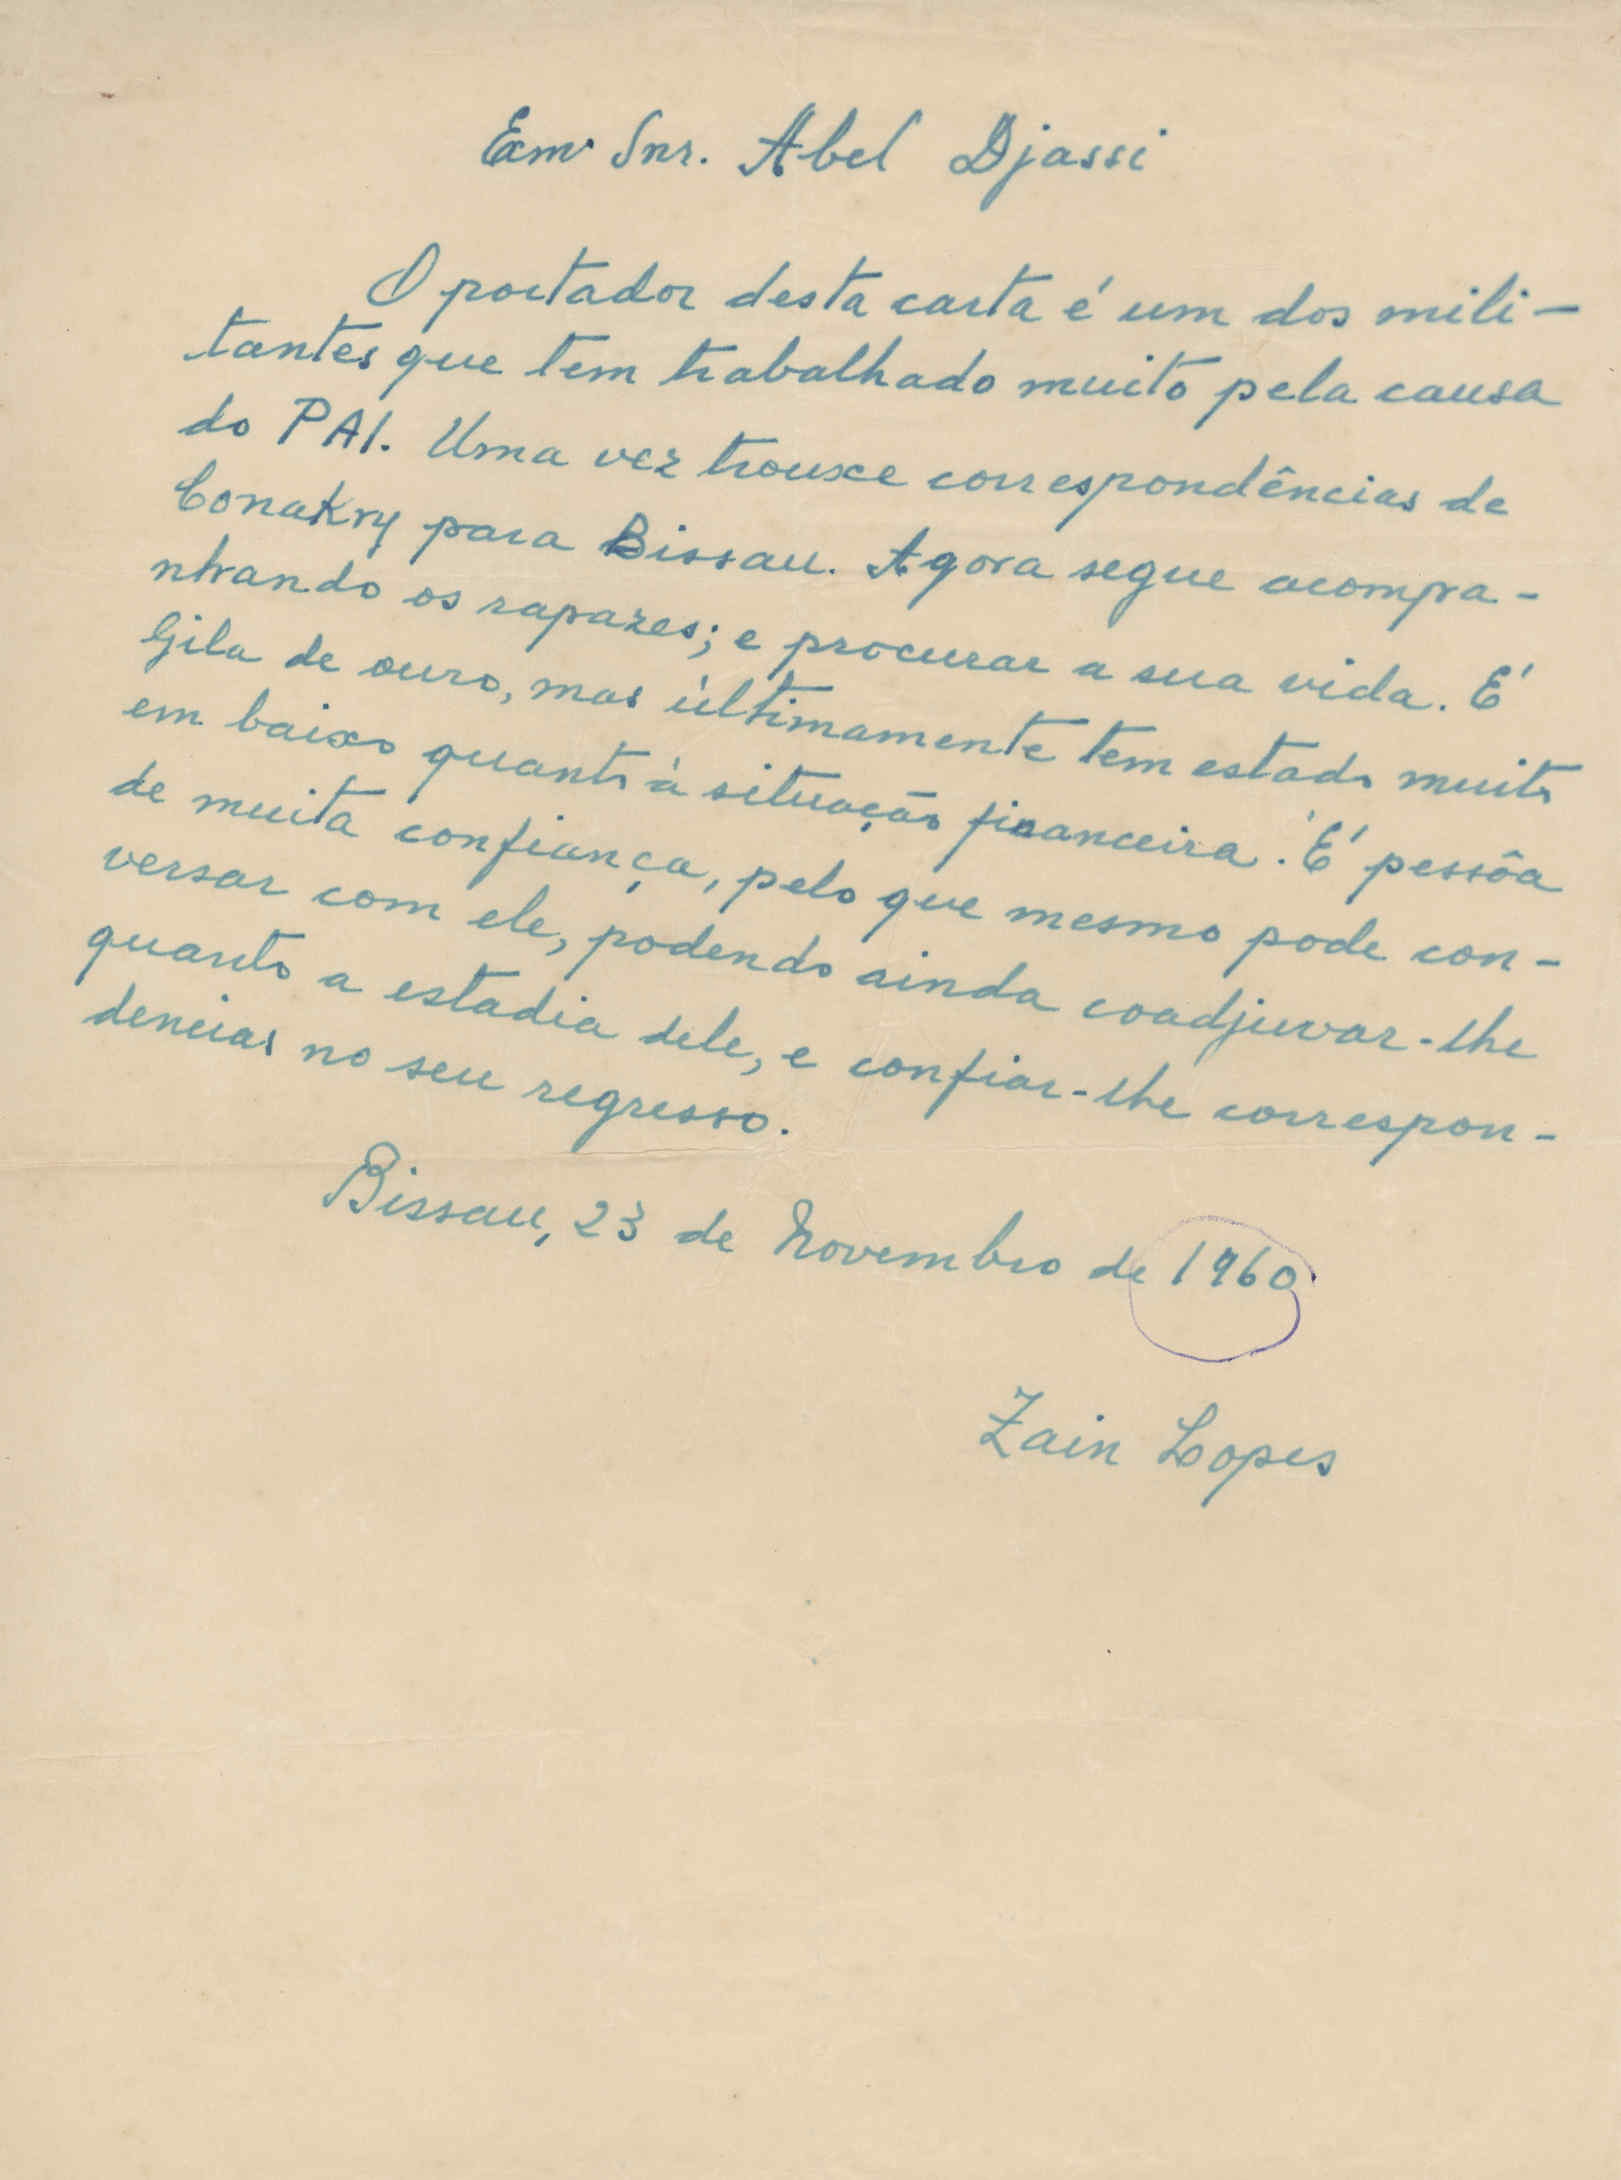 Exmº Snr. Abel Djassi
O portador desta carta é um dos mili-
tantes que tem trabalhado muito pela causa
do PAI. Uma vez trouxe correspondências de
Conakry para Bissau. Agora segue acompa-
nhando os rapazes; e procurar a sua vida. É
Gila de ouro, mas ùltimamente tem estado muito
em baixo quanto à situação financeira. É pessôa
de muita confiança, pelo que mesmo pode con-
versar com ele, podendo ainda coadjuvar-lhe
quanto a estadia dele, e confiar-lhe correspon-
dencias no seu regresso.
Bissau, 23 de Novembro de 1960
Zain Lopes